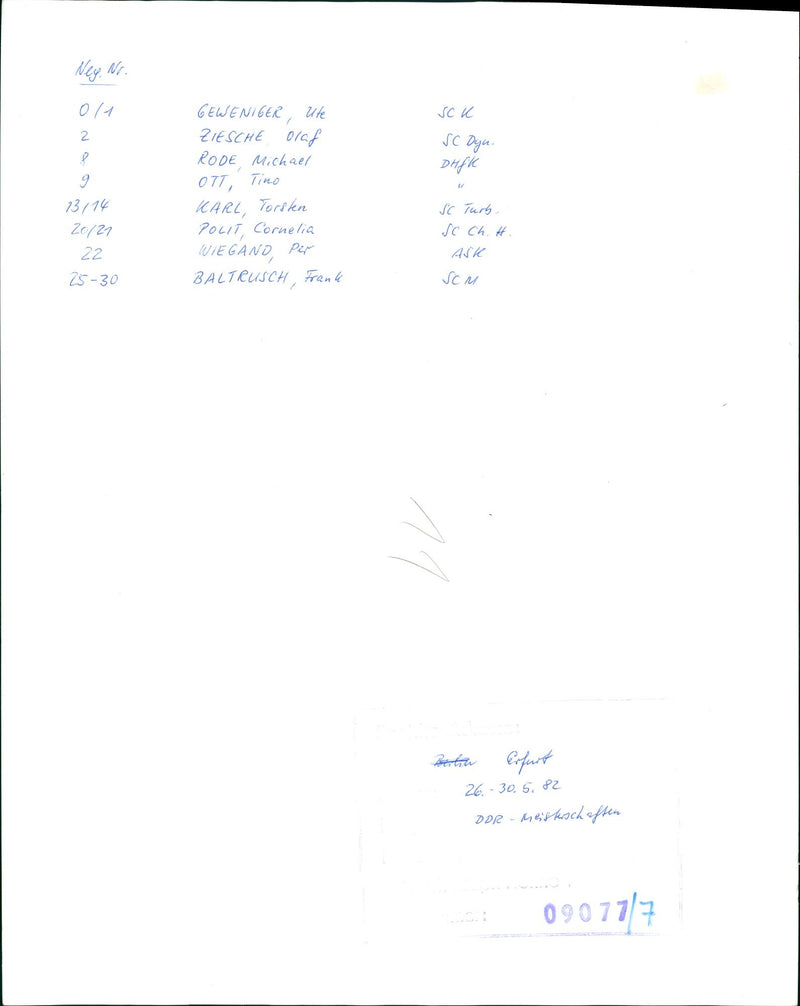 Neg. Nr.
0/1 GEWENIGER, Ute SC K
2 ZIESCHE Olaf SC Dyn.
8 RODE, Michael DHfK
9 OTT, Tino "
13/14 KARL, Torsten SC Turb.
20/21 POLIT, Cornelia SC Ch. H.
22 WIEGAND, Per ASK
25-30 BALTRUSCH, Frank SC M
Berlin Erfurt
26.-30.5.82
DDR-Meisterschaften
09077/7